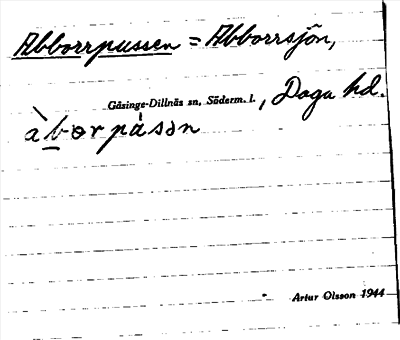 Abborrpussen = Abborrsjön,
Gåsinge-Dillnäs sn, Söderm. l., Daga hd.
àbɷrpásən
Artur Olsson 1944